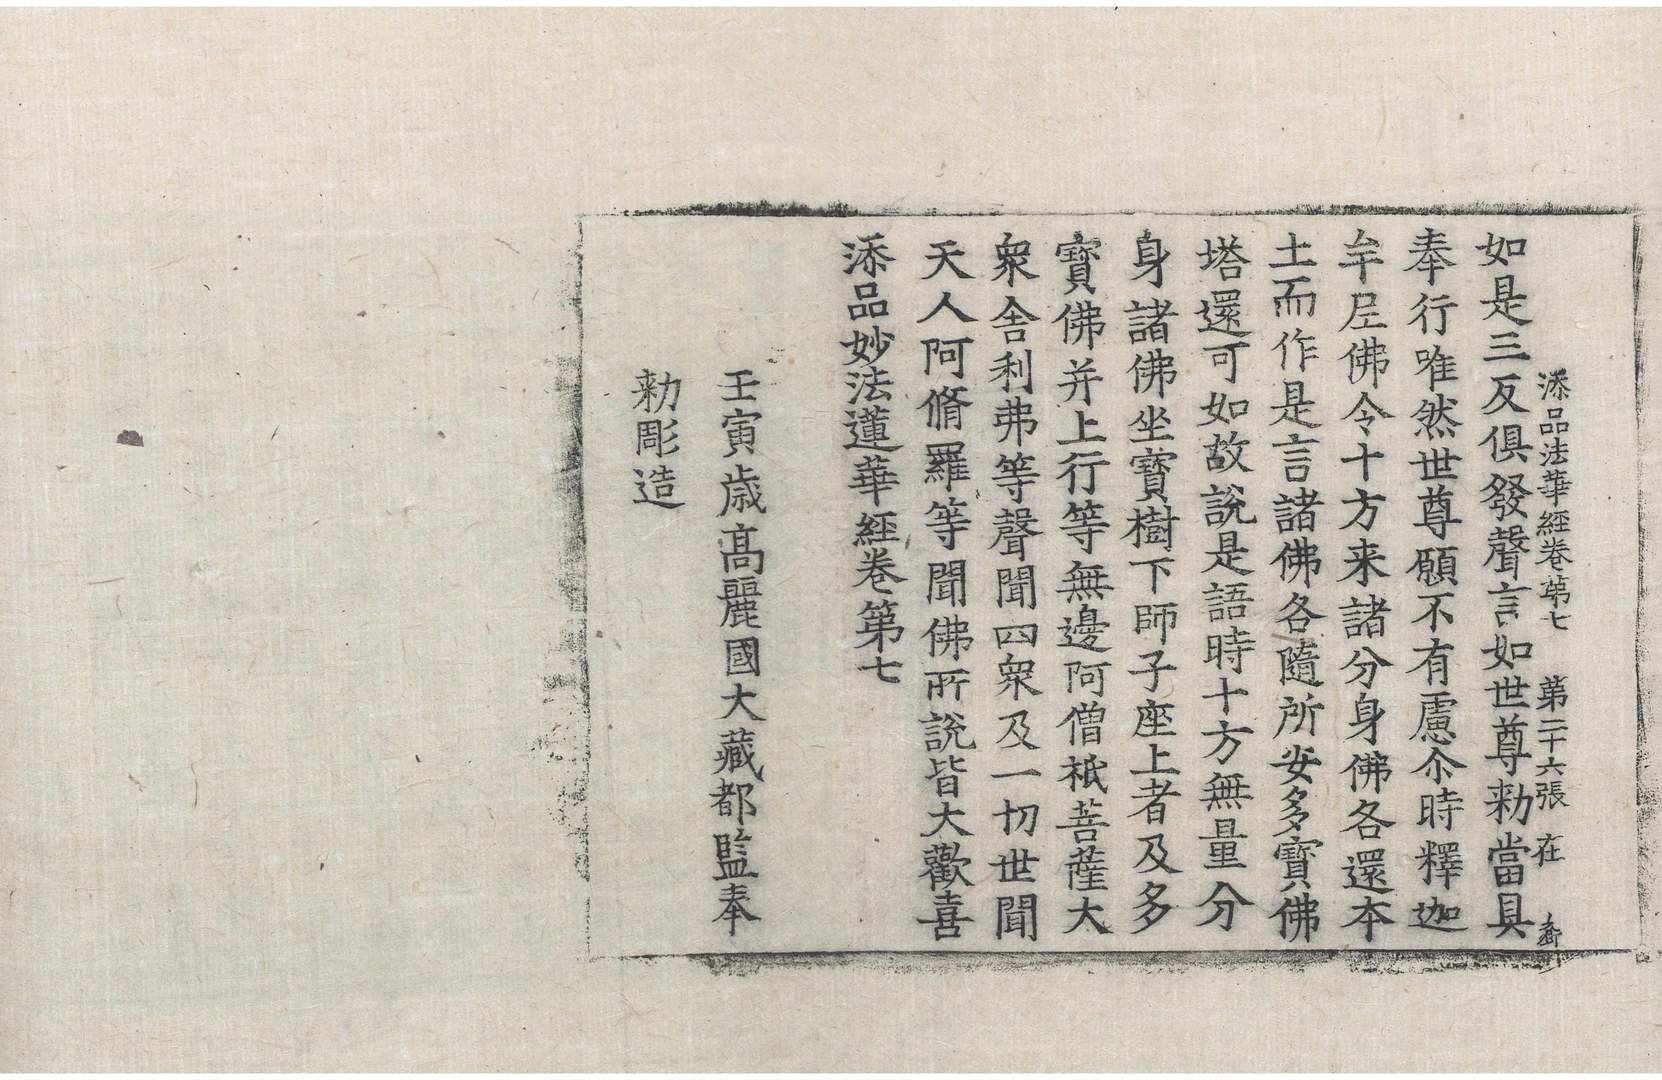 添品法華經卷第七 第二十六張 在
如是三反俱發聲言如世尊勅當具
奉行唯然世尊願不有慮尒時釋迦
牟尼佛令十方来諸分身佛各還本
土而作是言諸佛各隨所安多寶佛
塔還可如故說是語時十方無量分
身諸佛坐寶樹下師子座上者及多
寶佛并上行等無邊阿僧祇菩薩大
衆舎利弗等聲聞四衆及一切世間
天人阿脩羅等聞佛所說皆大歡喜
添品妙法蓮華經卷第七
壬寅歳高麗國大藏都監奉
勅彫造